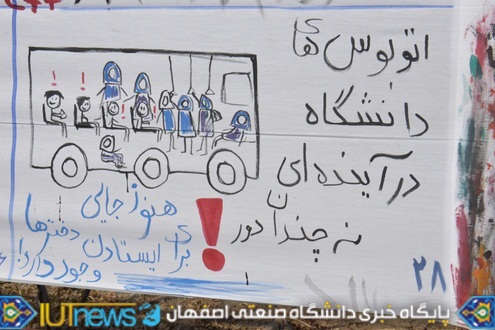 اتوبوس های
دانشگاه
در آینده ای
نه چندان دور
!
هنوز جایی
برای ایستادن دخترها
وجود دارد!
۲۸
! ! ! !
IUTnews
پایگاه خبری دانشگاه صنعتی اصفهان